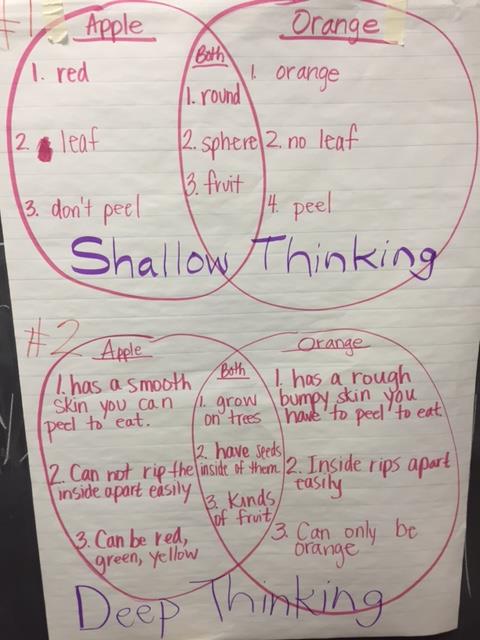 #1
Apple
1. red
2. leaf
3. don't peel
Both
1. round
2. sphere
3. fruit
Orange
1. orange
2. no leaf
4. peel
Shallow Thinking
#2
Apple
1. has a smooth
skin you can
peel to eat.
2. Can not rip the
inside apart easily
3. Can be red,
green, yellow
Both
1. grow
on trees
2. have seeds
inside of them
3. Kinds
of fruit
Orange
1. has a rough
bumpy skin you
have to peel to eat
2. Inside rips apart
easily
3. Can only be
orange
Deep Thinking